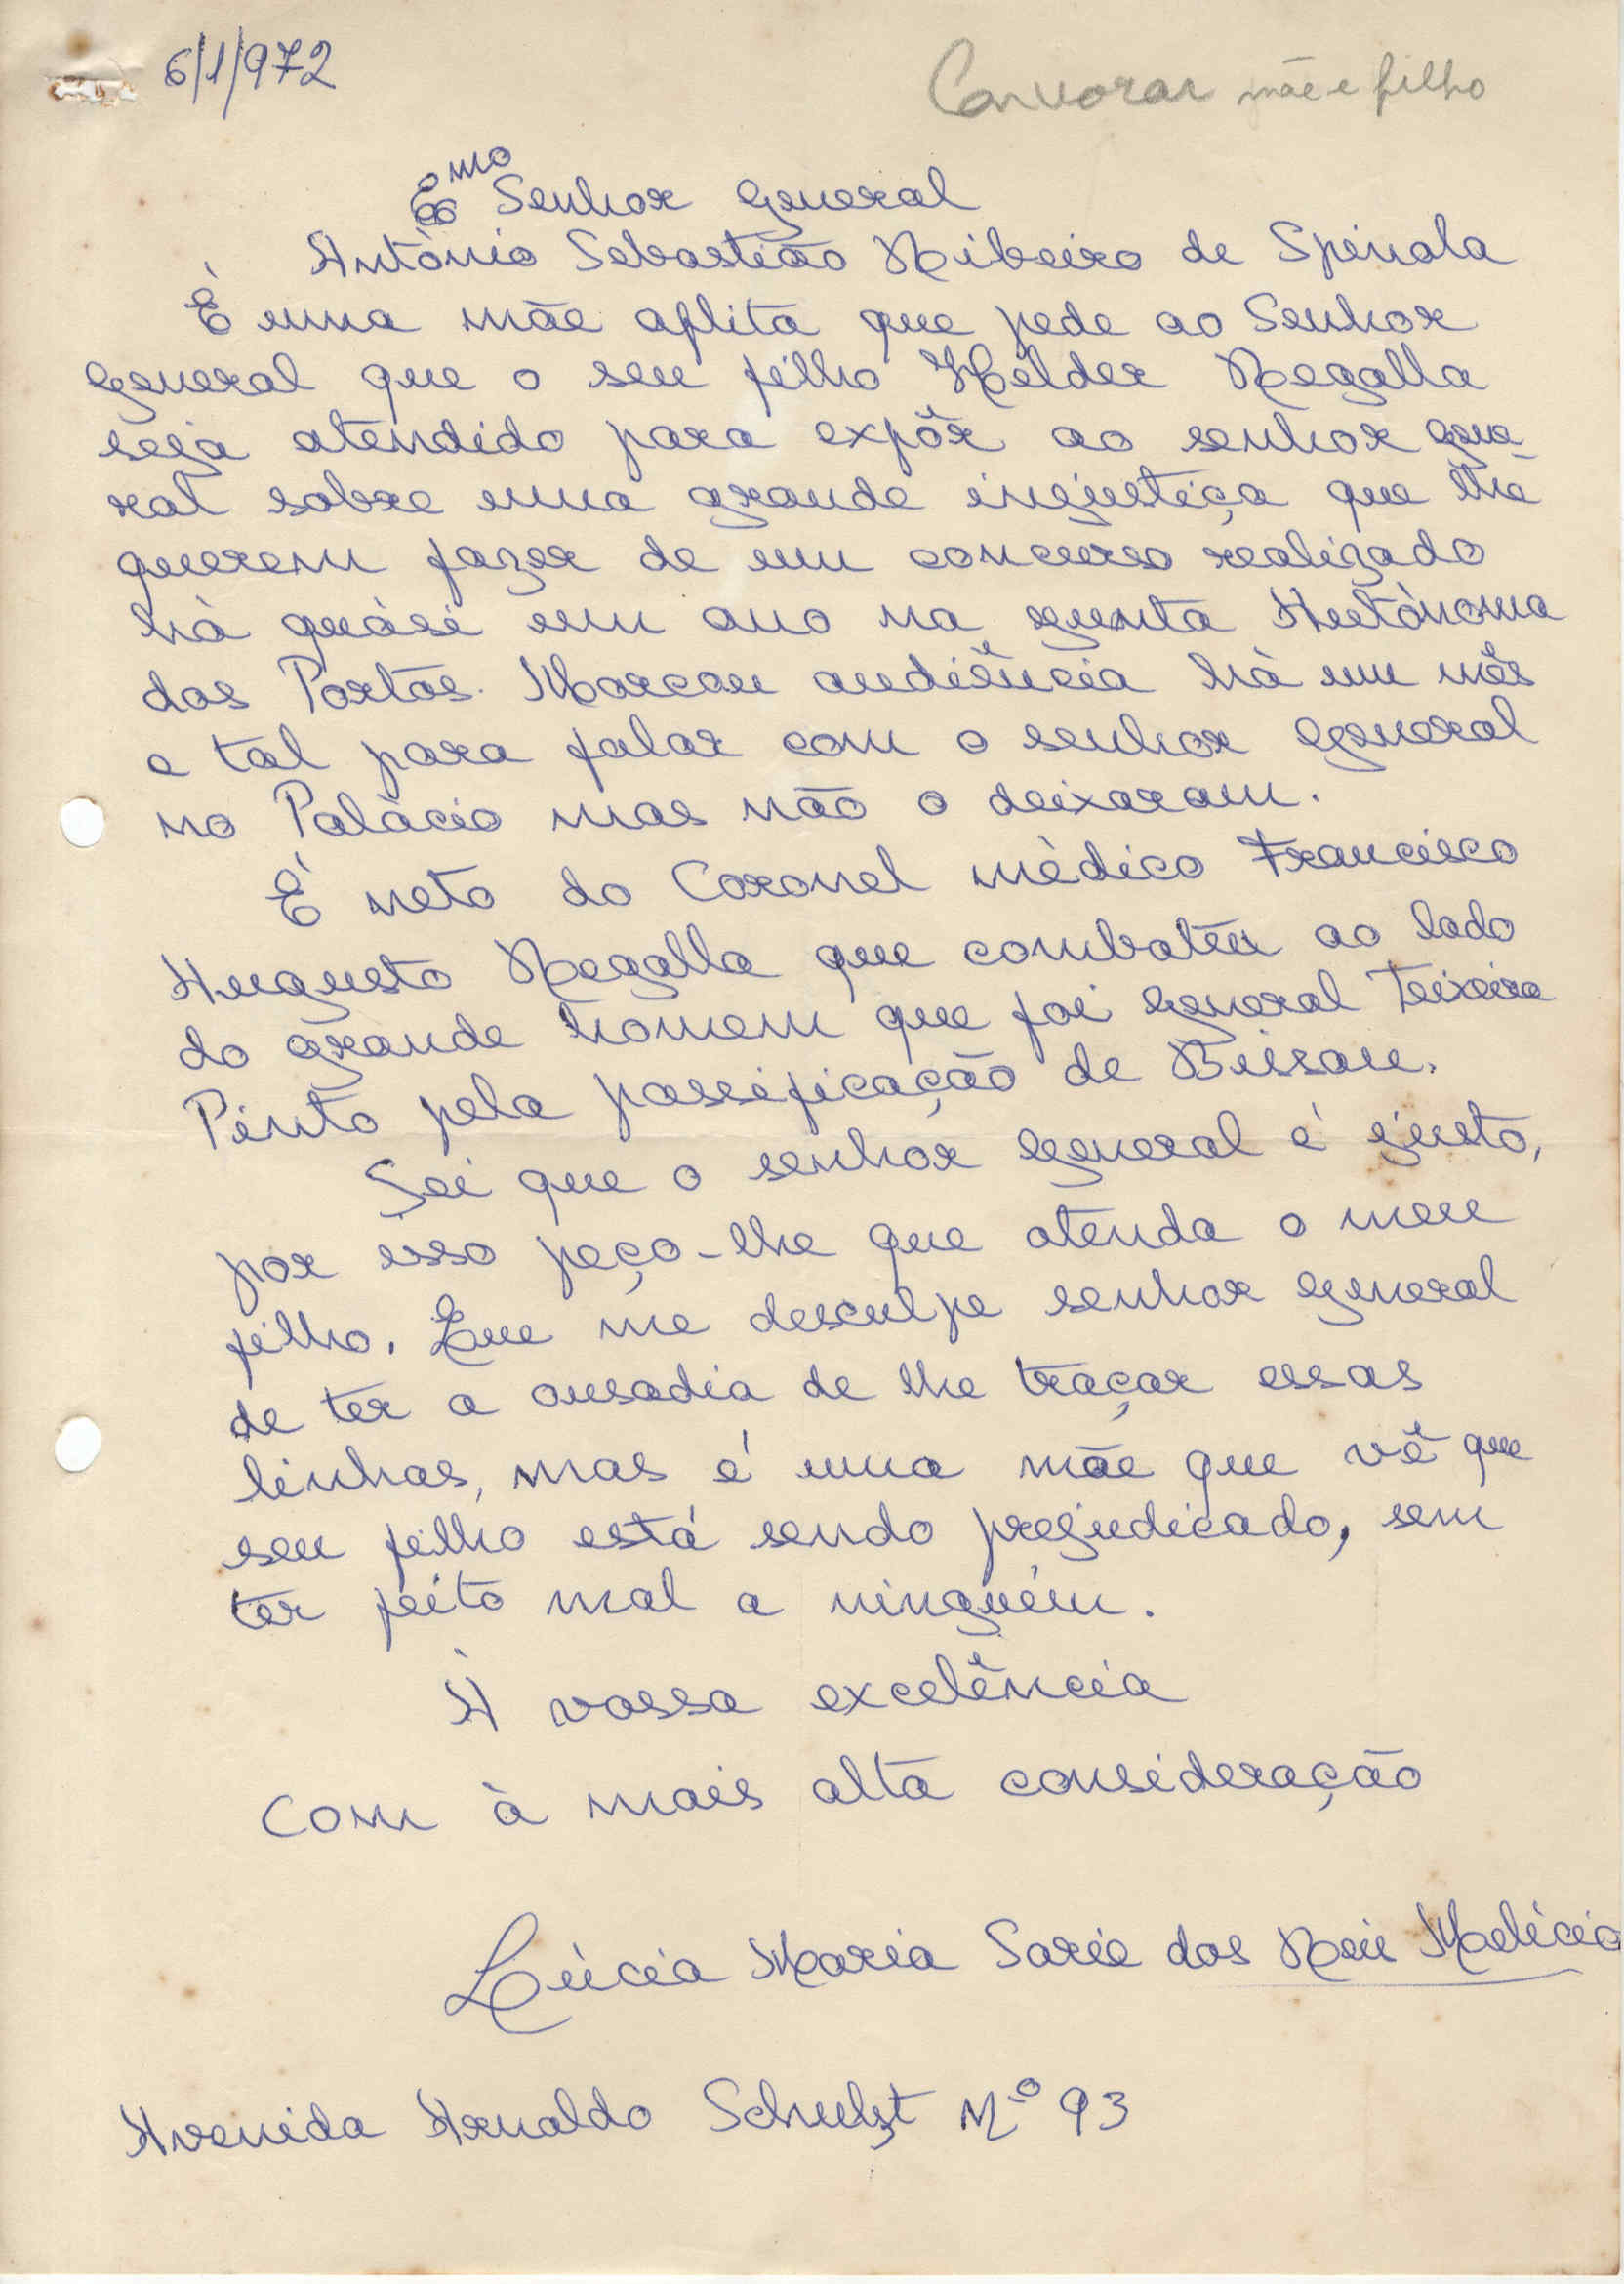 6/1/972
Convocar mãe e filho
Exmo Senhor General
António Sebastião Ribeiro de Spinola
È uma mãe aflita que pede ao Senhor
General que o seu filho Helder Regalla
seja atendido para expôr ao senhor gene
ral sobre uma grande injustiça que lhe
querem fazer de um concurso realizado
hà quàsi um ano na junta Autònoma
dos Portos. Marcou audiência hà um mês
e tal para falar com o senhor General
no Palàcio mas não o deixaram.
È neto do Coronel mèdico Francisco
Augusto Regalla que combateu ao lado
do grande homem que foi General Teixeira
Pinto pela passificação de Bissau.
Sei que o senhor General é justo,
por isso peço-lhe que atenda o meu
filho. Que me desculpe senhor General
de ter a ousadia de lhe traçar essas
linhas, mas é uma mãe que vê que
seu filho está sendo prejudicado, sem
ter feito mal a ninguém.
À vossa excelência
Com à mais alta consideração
Lúcia Maria Sarie dos Reis Malício
Avenida Arnaldo Schulzt Nº 93